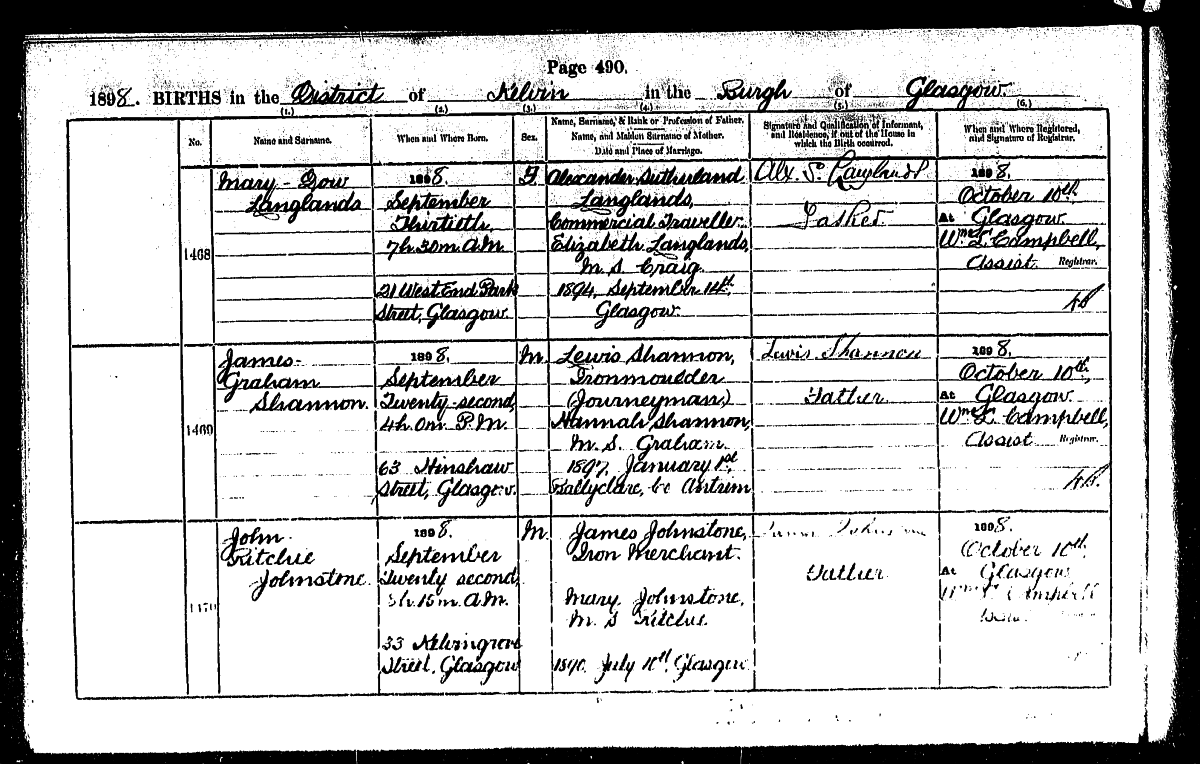 Page 490.
1898. BIRTHS in the District of Kelvin in the Burgh of Glasgow.
(1.) (2.) (3.) (4.) (5.) (6.)
No.
Name and Surname.
When and Where Born.
Sex.
Name, Surname, & Rank or Profession of Father.
Name, and Maiden Surname of Mother.
Date and Place of Marriage.
Signature and Qualification of Informant,
and Residence, if out of the House in
which the Birth occurred.
When and Where Registered,
and Signature of Registrar.
1468
Mary-Dow
Langlands
1898.
September
Thirtieth,
7h. 30m. A.M.
21 West End Park
Street, Glasgow.
F.
Alexander Sutherland
Langlands,
Commercial Traveller.
Elizabeth Langlands,
M.S. Craig.
1894, September 14th,
Glasgow.
Alx. S. Langlands
Father
1898.
October 10th,
At Glasgow.
Wm. L. Campbell,
Assist. Registrar.
1469
James-
Graham
Shannon.
1898.
September
Twenty-second,
4h. 0m. P.M.
63 Hinshaw
Street, Glasgow.
M.
Lewis Shannon,
Ironmoulder
(Journeyman,)
Hannah Shannon,
M.S. Graham.
1897, January 1st,
Ballyclare, Co. Antrim
Lewis Shannon
Father
1898.
October 10th,
At Glasgow.
Wm. L. Campbell,
Assist Registrar.
1470
John-
Ritchie
Johnstone.
1898.
September
Twenty second,
15m. A.M.
33 Kelvingrove
Street, Glasgow
M.
James Johnstone,
Iron Merchant.
Mary Johnstone,
M.S Ritchie.
July Glasgow
Johnstone
Father
1898.
October 10th,
At Glasgow
Wm. L Campbell